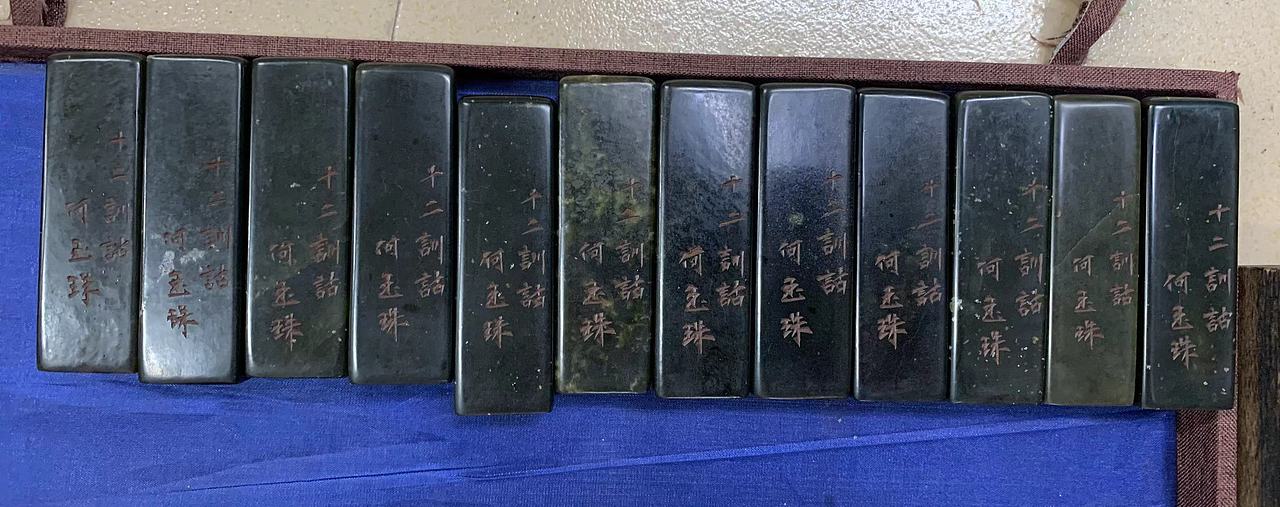 十二訓詁
何玉珠
十二訓詁
何玉珠
十二訓詁
何玉珠
十二訓詁
何玉珠
十二訓詁
何玉珠
十二訓詁
何玉珠
十二訓詁
何玉珠
十二訓詁
何玉珠
十二訓詁
何玉珠
十二訓詁
何玉珠
十二訓詁
何玉珠
十二訓詁
何玉珠